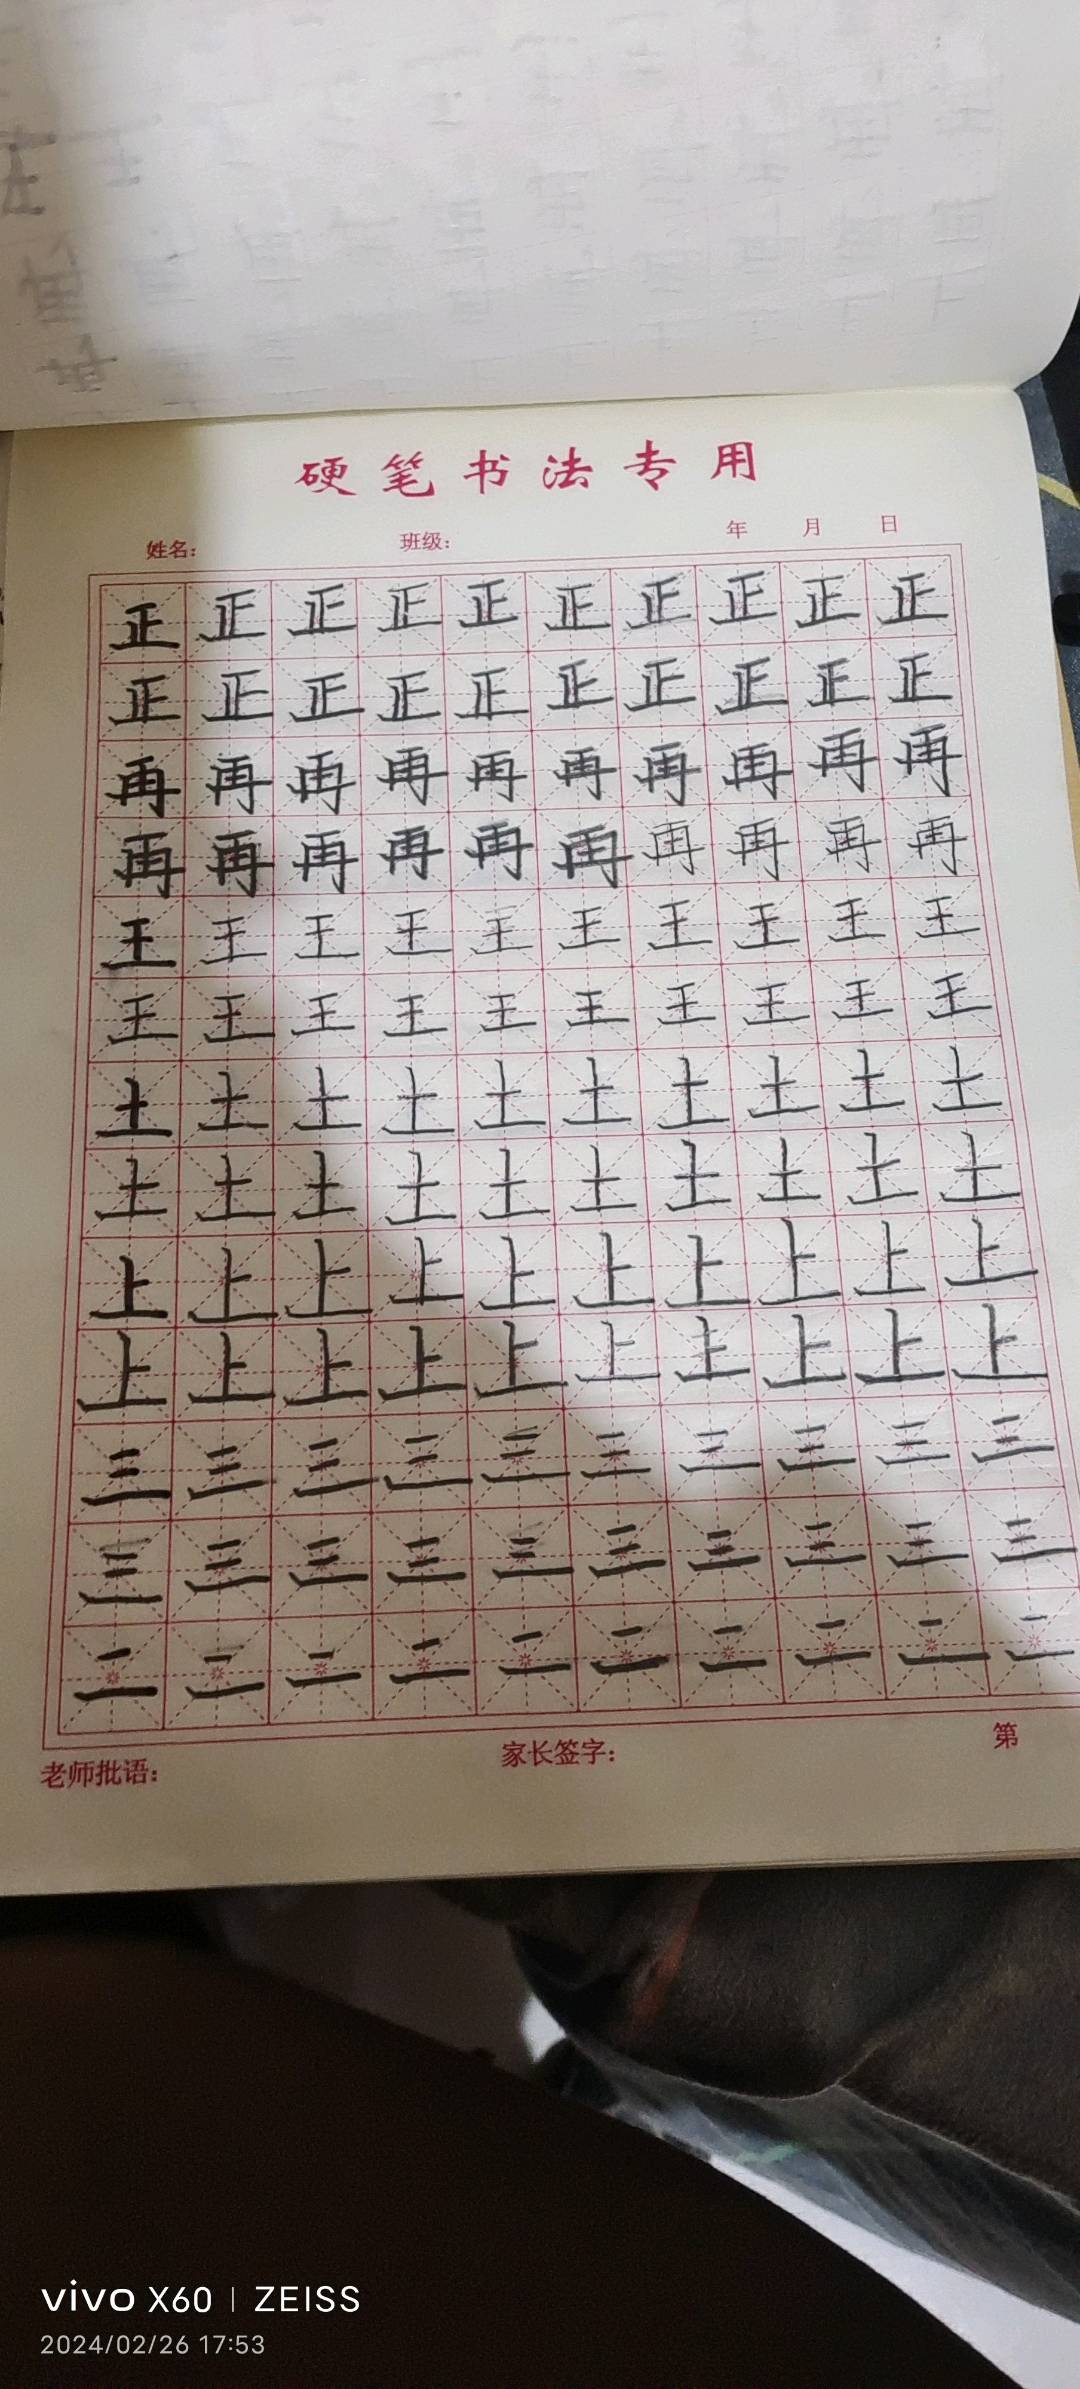 硬笔书法专用
姓名： 班级： 年 月 日
正 正 正 正 正 正 正 正 正 正
正 正 正 正 正 正 正 正 正 正
再 再 再 再 再 再 再 再 再 再
再 再 再 再 再 再 再 再 再 再
王 王 王 王 王 王 王 王 王 王
王 王 王 王 王 王 王 王 王 王
土 土 土 土 土 土 土 土 土 土
土 土 土 土 土 土 土 土 土 土
上 上 上 上 上 上 上 上 上 上
上 上 上 上 上 上 上 上 上 上
三 三 三 三 三 三 三 三 三 三
三 三 三 三 三 三 三 三 三 三
二 二 二 二 二 二 二 二 二 二
老师批语： 家长签字： 第
vivo X60 | ZEISS
2024/02/26 17:53